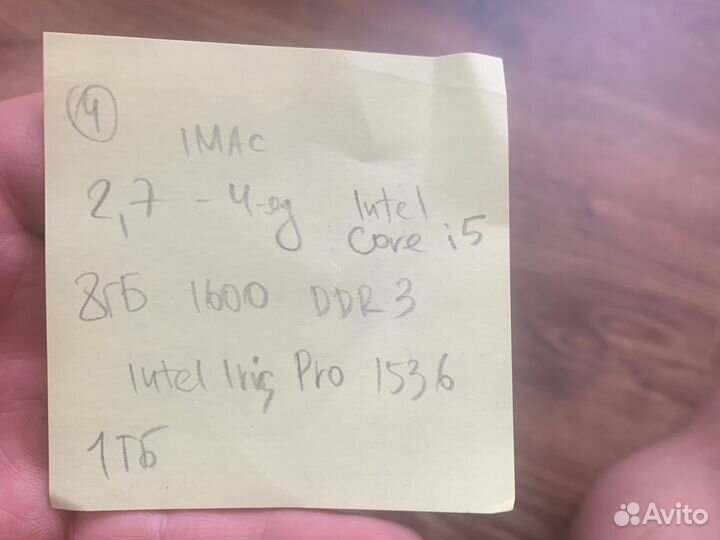 4
IMAC
2,7 - 4-яд Intel
Core i5
8гБ 1600 DDR3
Intel Iris Pro 1536
1ТБ
Avito